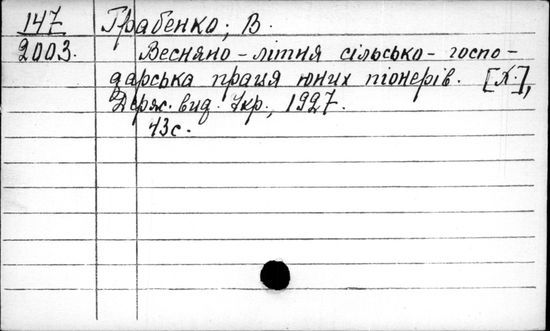 147 Грабенко, В.
2003. Весняно-літня сільсько-госпо-
дарська праця юних піонерів. [Х.],
Держ. вид. Укр., 1927.
43с.